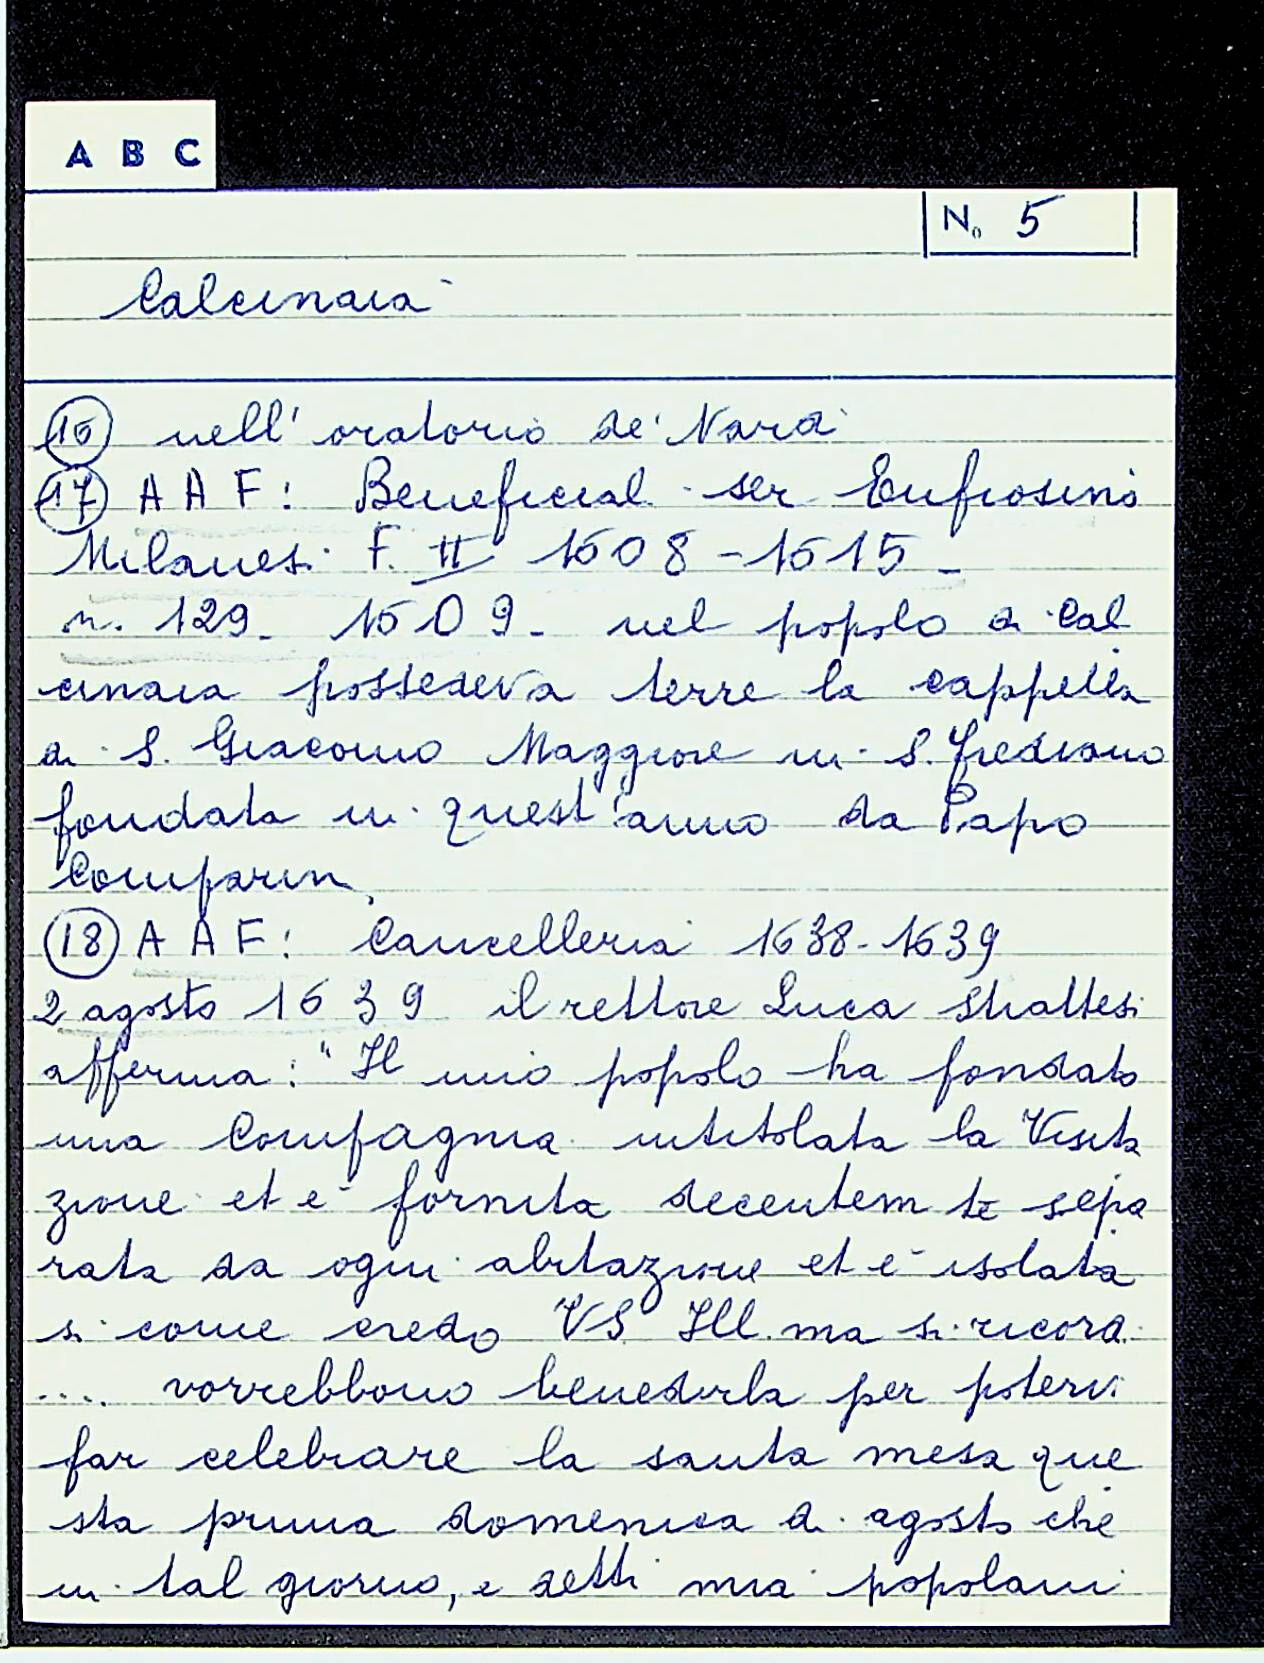 A B C
No 5
Calcinaia
16 nell' oratorio de' Nardi
17 A A F: Beneficial ser Eufrosino
Milanesi F. II 1608-1615 -
n. 129. 1609. nel popolo di Cal
cinaia possedeva terre la cappella
di S. Giacomo Maggiore in S. Frediano
fondata in quest'anno da Papo
Comparini
18 A A F: Cancelleria 1638-1639
2 agosto 1639 il rettore Luca Strattesi
afferma: "Il mio popolo ha fondato
una Compagnia intitolata la Visita
zione et è fornita decentem te sepa
rata da ogni abitazione et è isolata
si come credo VS Ill.ma si ricordi
.... vorrebbono benedirla per potervi
far celebrare la santa mesa que
sta prima domenica di agosto che
in tal giorno, e detti mia popolani